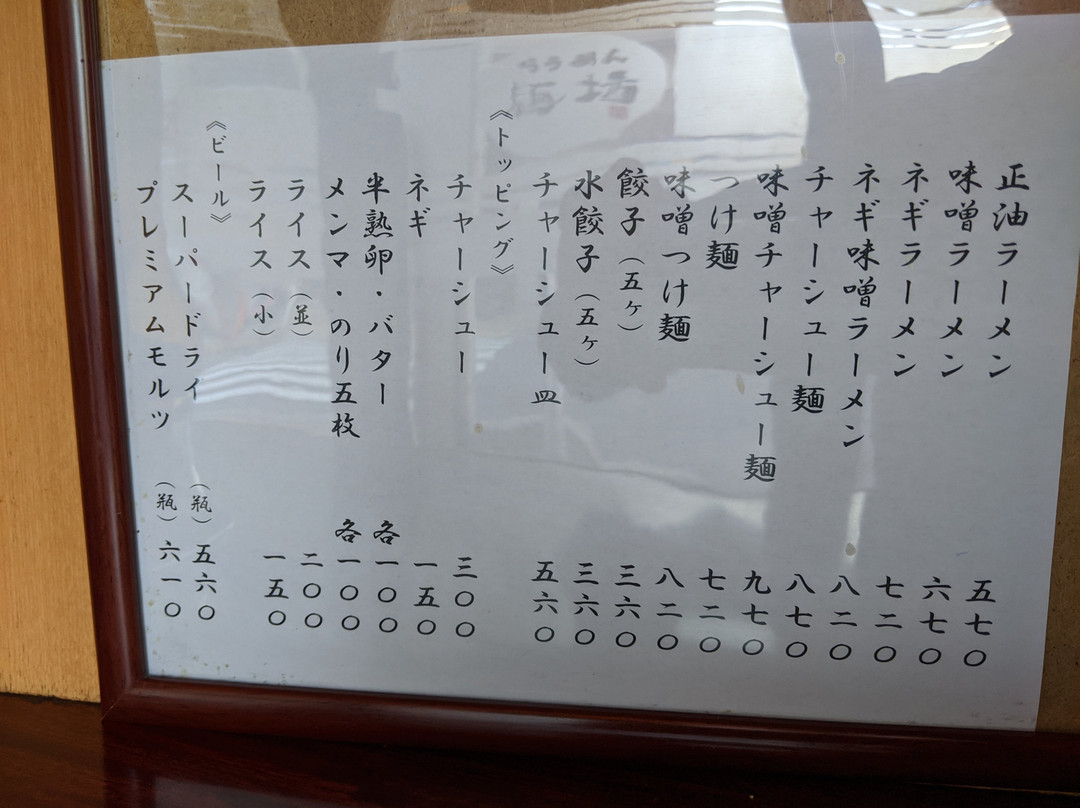 正油ラーメン 五七〇
味噌ラーメン 六七〇
ネギラーメン 七二〇
ネギ味噌ラーメン 八二〇
チャーシュー麺 八七〇
味噌チャーシュー麺 九七〇
つけ麺 七二〇
味噌つけ麺 八二〇
餃子(五ヶ) 三六〇
水餃子(五ヶ) 三六〇
チャーシュー皿 五六〇
《トッピング》
チャーシュー 三〇〇
ネギ 一五〇
半熟卵・バター 各一〇〇
メンマ・のり五枚 各一〇〇
ライス(並) 二〇〇
ライス(小) 一五〇
《ビール》
スーパードライ (瓶) 五六〇
プレミアムモルツ (瓶) 六一〇